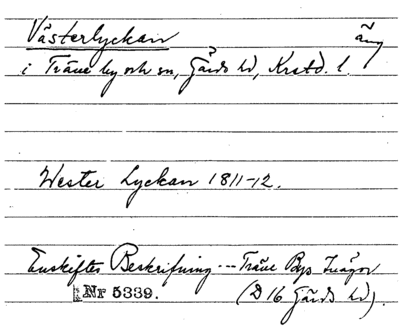 Västerlyckan äng
i Träne by och sn, Gärds hd, Krstd. l.
Wester Lyckan 1811-12.
Enskiftes Beskrifning --- Träne Bys Inägor
Nr 5339. (D 16 Gärds hd).